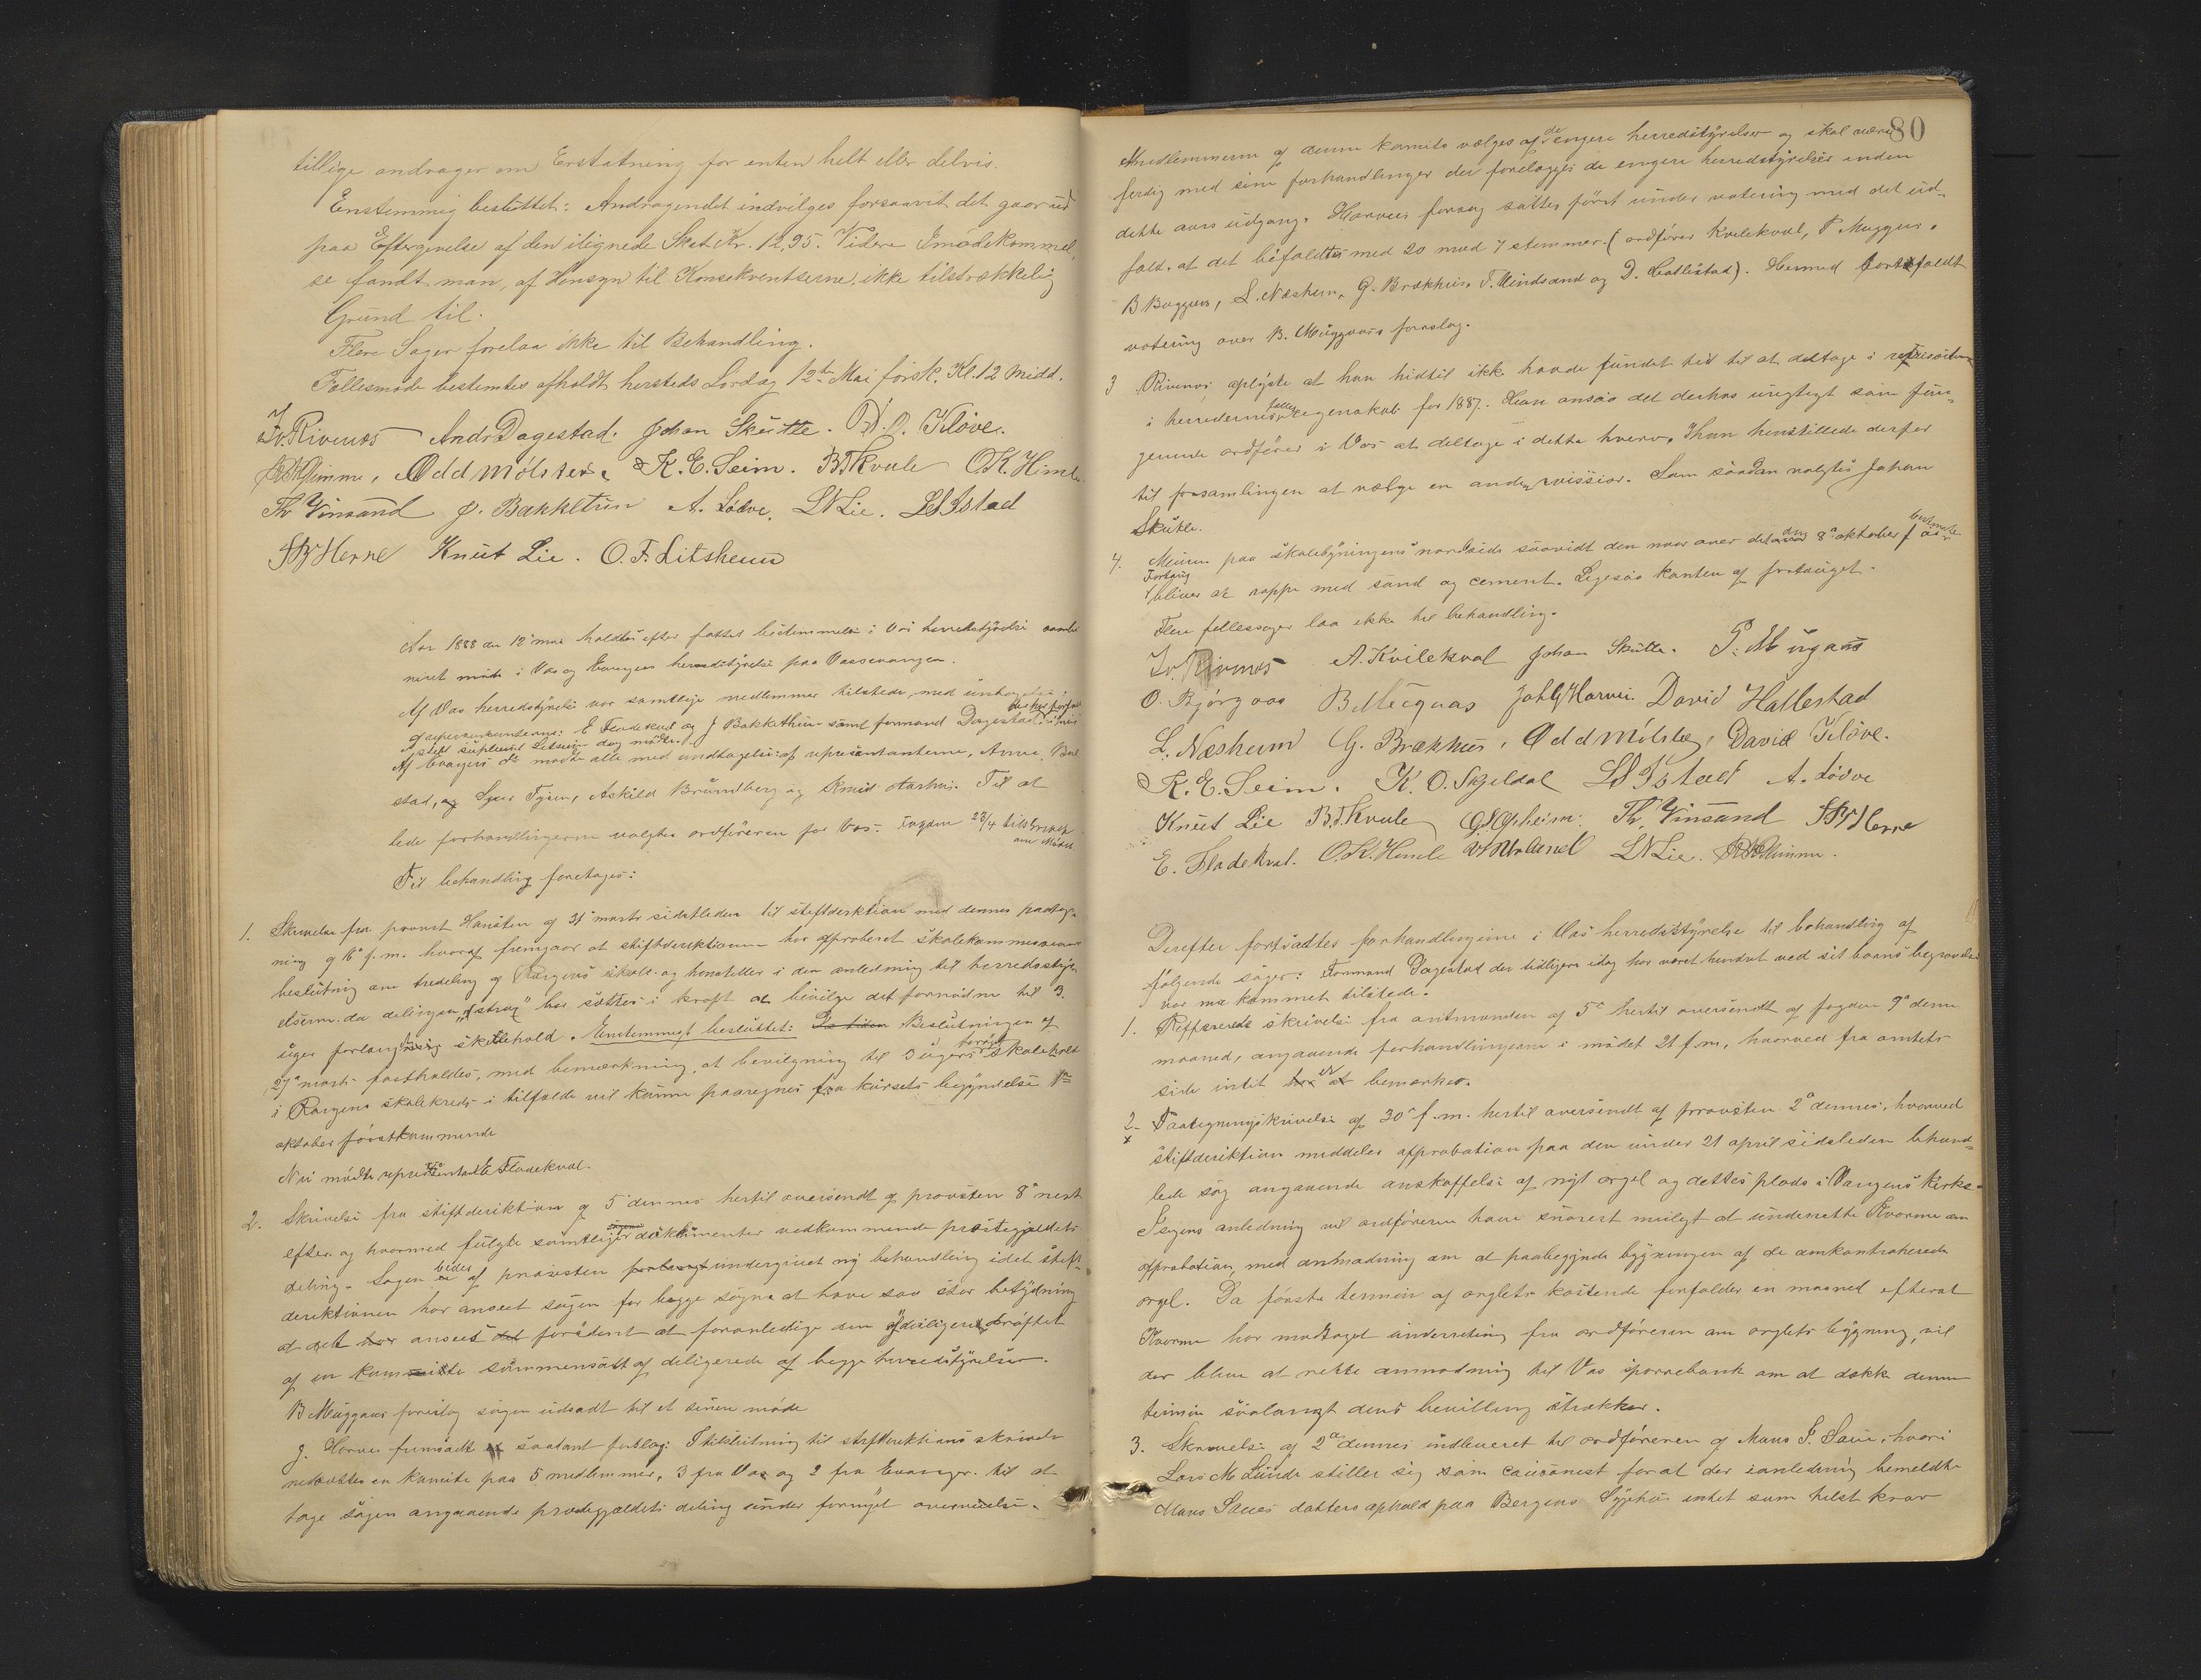 tillige andrager om Erstatning for enten helt eller delvis.
Enstemmig besluttet: Andragendet indvilges forsaavit det gaar ud
paa Eftergivelse af den ilignede Skat Kr. 12,95. Videre Imødekommel,
se fandt man, af Hensyn til Konsekventserne, ikke tilstrækkelig
Grund til.
Flere Sager forelaa ikke til Behandling.
Fællesmøde bestemtes afholdt hersteds Lørdag 12te Mai førstk. Kl. 12 Midd.
Iv. Rivenos Andr Dagestad. Johan Skutle. D. Kløve.
Gjimme, Odd Mølster, K. E. Seim. B T Kvale O K. Himle
Th Vinsand J. Bakketun A. Lødve. L N Lie. L Istad
Herre Knut Lie. O. F. Litsheim
Aar 1888 den 12 mai holdtes efter fattet bestemmelse i Vos herredstyrelse kombi
neret møde i Vos og Evangers herredstyrelse paa Vossevangen.
Af Vos herredstyrelse var samtlige medlemmer tilstede med undtagelse
af repræsentanterne: E Fladekval og J Bakkethun samt formand Dagestad
Af Evangers do mødte alle med undtagelse af repræsentanterne, Anve, Bol
stad, og Sjur Tysen, Askild Brundberg og Knud Aarhus. Til at
lede forhandlingerne valgtes ordføreren for Vos. Fogden 23/4 tilskrevet
om Mødet
Til behandling foretoges:
1. Skrivelse fra provst Hansteen af 31 marts sidstleden til stiftdirektion med dennes paateg-
ning af 16 f. m. hvoraf fremgaar at stiftdirektionen har approberet skolekommissionens
beslutning om tredeling af Rongens skole og henstiller i den anledning til herredssty-
relserne da delingen "strax" bør sættes i kraft at bevilge det fornødne til 3
uger forlænget skolehold. Enstemmigt besluttet: Da tiden Beslutningen af
27 marts fastholdes, med bemærkning, at bevilgning til 3 ugers forøget skolehold
i Rongens skolekreds i tilfælde vil kunne paaregnes fra kursets begyndelse 1ste
oktober førstkommende
Nu mødte repræsentant E Fladekval.
2. Skrivelse fra stiftdirektion af 5 dennes hertil oversendt af provsten 8 næst
efter og hvormed fulgte samtlige sagens dokumenter vedkommende præstegjældets
deling. Sagen bedes af provsten undergivet ny behandling idet stift-
direktionen har anseet sagen for begge sogne at have saa stor betydning
at det har anseet det forsvarligt at foranledige den yderligere drøftet
af en kommitte sammensat af deligerede af begge herredstyrelser.
B Mugaas foreslog sagen udsadt til et senere møde
J. Horvei fremsadte saadant forslag: I tilslutning til stiftdirektionens skrivelse
nedsættes en komite paa 5 medlemmer, 3 fra Vos og 2 fra Evanger. til at
tage sagen angaaende prestegjældets deling under fornyet overveielse.
80
Medlemmerne af denne komite vælges af de engere herredstyrelser og skal være
ferdig med sine forhandlinger der forelægges de engere herredstyrelser inden
dette aars udgang. Horveis forslag sattes først under votering med det ud-
fald at det bifaldtes med 20 mod 7 stemmer (ordfører Kvilekval, P. Muggaas,
B Muggaas, L. Næsheim, G. Brækhus, T. Vindsand og D. Hallestad). Hermed bortfaldt
votering over B. Muggaas's forslag.
3 Rivenos oplyste at han hidtil ikke havde fundet tid til at deltage i revisionen
i herredernes fælles regnskab for 1887. Han ansaa det derhos urigtigt som fun-
gerende ordfører i Vos at deltage i dette hverv. Ihan henstillede derfor
til forsamlingen at vælge en anden revisior. Som saadan valgtes Johan
Skutle.
4. Muren paa skolebygningens nordside saavidt den naar over det den 8 oktober f a. bestemte
Fortaug bliver at rappe med sand og cement. Ligesaa kanten af fortauget.
Flere fellessager laa ikke til behandling.
Iv. Rivenos A. Kvilekval Johan Skutle. P. Mugaas
O. Bjørgaas B Mugaas Joh G Horvei. David Hallestad
L. Næsheim G. Brækhus, Odd Mølster, David Kløve.
K. E. Seim. K. O. Skjeldal L Istad A. Lødve
Knut Lie B. T. Kvale Opheim. Th. Vinsand Herre
E. Fladekval. O. K. Himle L N Lie. Gjimme.
Derefter fortsattes forhandlingerne i Vos herredsstyrelse til behandling af
følgende sager: Formand Dagestad der tidligere idag har været hindret ved sit barns begravelse
var nu kommet tilstede.
1. Reffererede skrivelse fra amtmanden af 5te hertil oversendt af fogden 9de denne
maaned, angaaende forhandlingerne i mødet 21 f. m., hvorved fra amtets
side intet er at bemærke.
2. Paategningsskrivelse af 30 f. m. hertil oversendt af provsten 2 dennes, hvorved
x
stiftdirektion meddeles approbation paa den under 21 april sidsleden behand-
lede sag angaaende anskaffelse af nyt orgel og dettes plads i Vangens kirke.
I sagens anledning vil ordføreren have snarest muligt at underrette Kvarme om
approbation, med anmodning om at paabegynde bygningen af de omkontraherede
orgel. Da første termin af orglets kostende forfalder en maaned efterat
Kvarme har modtaget underretning fra ordføreren om orglets bygning, vil
der blive at rette anmodning til Vos sparrebank om at dække denne
termin saalangt dens bevilling strækker.
3. Skrivelse af 2 dennes indleveret til ordføreren af Mons P. Saue, hvori
Lars M Lunde stiller sig som causonist for at der i anledning bemeldte
Mons Saues datters ophold paa Bergens Sygehus intet som helst krav